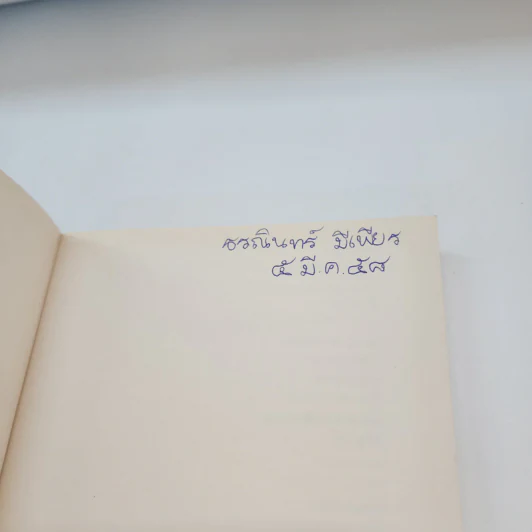 ธรณินทร์ มีเพียร
๕ มี.ค.๕๘